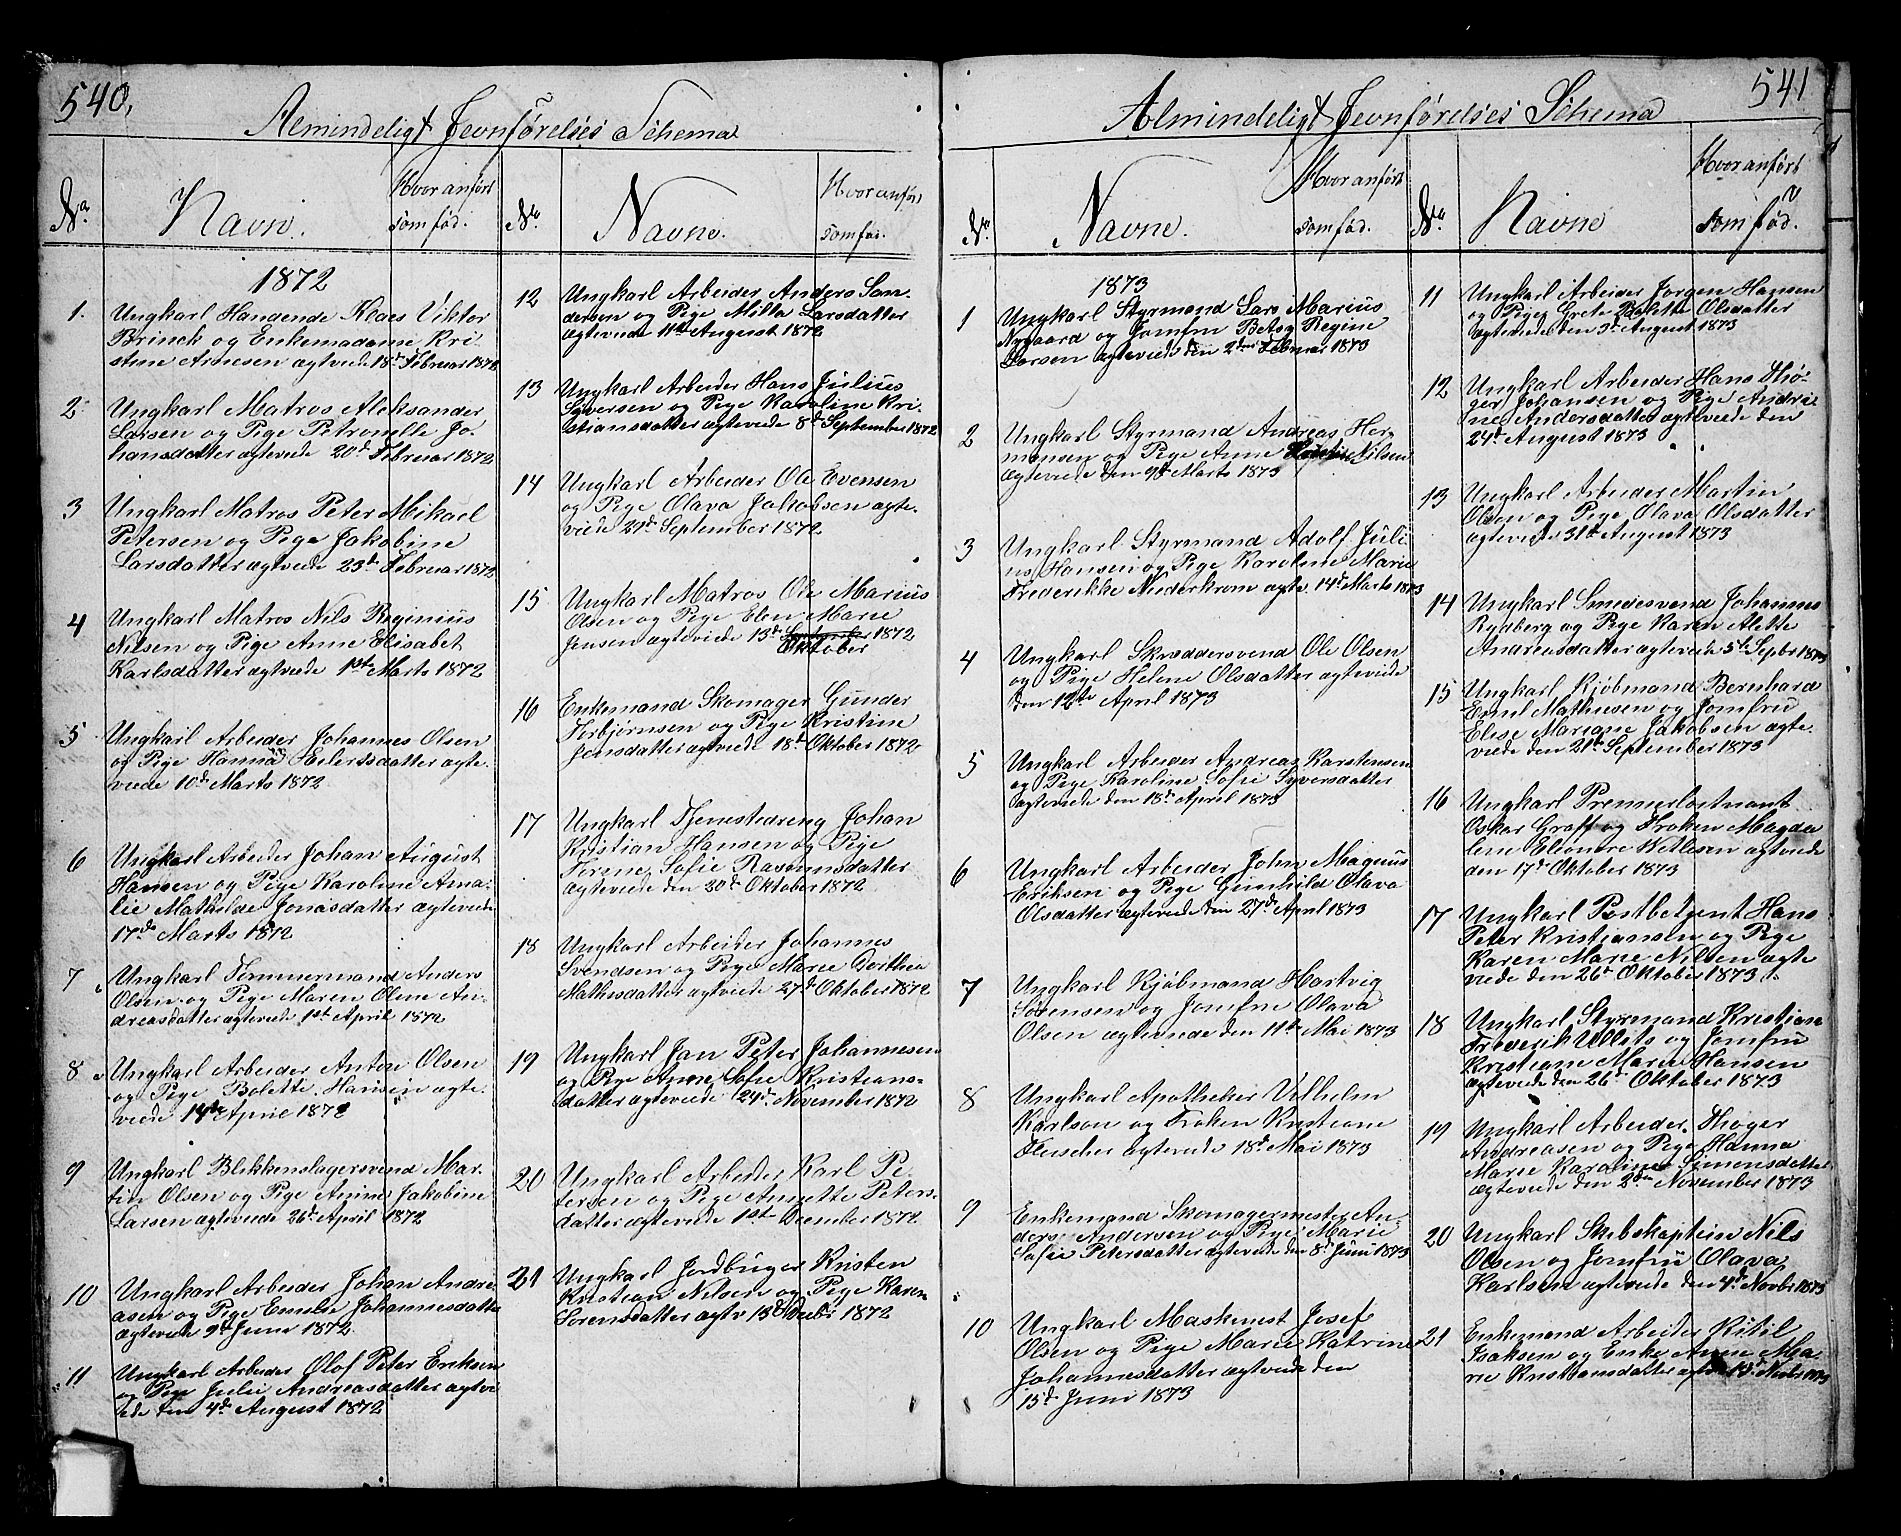 540,
Almindeligt Jevnførelses Schema
No.
Navn.
Hvor anført
som fød.
1872
1. Ungkarl Handlende Klaes Viktor
Brinck og Enkemadame Kri-
stine Arnesen ægteviede 18d Februar 1872
2 Ungkarl Matros Aleksander
Larsen og Pige Petronelle Jo-
hansdatter ægteviede 20d Februar 1872
3 Ungkarl Matros Peter Mikael
Petersen og Pige Jakobine
Larsdatter ægteviede 23d Februar 1872
4 Ungkarl Matros Nils Reginius
Nilsen og Pige Anne Elisabet
Karlsdatter ægteviede 1ste Marts 1872
5 Ungkarl Arbeider Johannes Olsen
og Pige Hanna Eilertsdatter ægte-
viede 10d Marts 1872
6 Ungkarl Arbeider Johan August
Hansen og Pige Karoline Ama-
lie Mathilde Jonasdatter ægteviede
17de Marts 1872
7 Ungkarl Tømmermand Anders
Olsen og Pige Maren Oline An-
dreasdatter ægteviede 1st April 1872
8 Ungkarl Arbeider Anton Olsen
og Pige Bolette Hansen ægte-
viede April 1872
9 Ungkarl Blikkenslagersvend Mar-
tin Olsen og Pige Anine Jakobine
Larsen ægteviede 26d April 1872
10 Ungkarl Arbeider Johan Andre-
asen og Pige Emelie Johannesdatter
ægteviede 9de Juni 1872
11 Ungkarl Arbeider Olof Peter Eriksen
og Pige Julie Andreasdatter ægtvi
ede den 4d August 1872
No
Navne.
Hvor anført
som fød.
12 Ungkarl Arbeider Anders San-
dersen og Pige Milla Larsdatter
ægteviede 11te August 1872
13 Ungkarl Arbeider Hans Julius
Syversen og Pige Karoline Kri-
stiansdatter ægteviede 8d September 1872
14 Ungkarl Arbeider Ole Evensen
og Pige Olava Jakobsen ægte-
viede 29d September 1872
15 Ungkarl Matros Ole Marius
Olsen og Pige Elen Marie
Jensen ægteviede 13d September 1872
Oktober
16 Enkemand Skomager Gunder
Torbjørnsen og Pige Kristine
Jensdatter ægteviede 18d Oktober 1872
17 Ungkarl Tjenestedreng Johan
Kristian Hansen og Pige
Torine Sofie datter
ægteviede den 20d Oktober 1872
18 Ungkarl Arbeider Johannes
Svendsen og Pige Marie Dorthea
Mathisdatter ægteviede 27d Oktober 1872
19 Ungkarl Jan Peter Johannesen
og Pige Anne Sofie Kristians-
datter ægteviede 24d November 1872
20 Ungkarl Arbeider Karl Pe-
tersen og Pige Annette Peters-
datter ægteviede 1ste December 1872
21 Ungkarl Jordbruger Kristen
Kristian Nilsen og Pige Karen
Sørensdatter ægtv 13d Decbr 1872
541
Almindeligt Jevnførelses Schema
No.
Navne.
Hvor anført
som fød.
1873
1 Ungkarl Styrmand Lars Marius
Nygaard og Jomfru Betsy Regine
Larsen ægteviede den 2den Februar 1873
2 Ungkarl Styrmand Andreas Her-
mansen og Pige Anne Nilsen
ægteviede den 9d Marts 1873
3 Ungkarl Styrmand Adolf Juli-
us Hansen og Pige Karoline Marie
Frederikke Niederkrom ægte. 14d Marts 1873
4 Ungkarl Skræddersvend Ole Olsen
og Pige Helene Olsdatter ægteviede
den 12te April 1873
5 Ungkarl Arbeider Andreas Karstensen
og Pige Karoline Sofie Syversdatter
ægteviede den 13d April 1873
6 Ungkarl Arbeider John Magnus
Eriksen og Pige Gunhild Olava
Olsdatter ægteviede den 27d April 1873
7 Ungkarl Kjøbmand Hartvig
Sørensen og Jomfru Olava
Olsen ægteviede den 11te Mai 1873
8 Ungkarl Apotheker Vilhelm
Karlson og Frøken Kristiane
Fleischer ægteviede 18d Mai 1873
9 Enkemand Skomagermester An-
ders Andersen og Pige Marie
Sofie Petersdatter ægteviede den 8d Juni 1873
10 Ungkarl Maskinist Josef
Olsen og Pige Marie Katrine
Johannesdatter ægteviede den
15d Juni 1873
No.
Navne
Hvor anført
som fød.
11 Ungkarl Arbeider Jørgen Hansen
og Pige Grete Bolette Olsdatter
ægteviede den 3d August 1873
12 Ungkarl Arbeider Hans Thø-
ger Johansen og Pige Andri-
ne Andersdatter ægteviede den
24d August 1873
13 Ungkarl Arbeider Martin
Olsen og Pige Olava Olsdatter
ægteviede 31te August 1873
14 Ungkarl Smedesvend Johannes
Rydberg og Pige Karen Alette
Andreasdatter ægteviede 5d Septbr 1873
15 Ungkarl Kjøbmand Bernhard
Emil Mathiesen og Jomfru
Elise Mariane Jakobsen ægte-
viede den 21de September 1873
16 Ungkarl Premierløitnant
Oskar Graff og Frøken Magda
lene Elionore Vetlesen ægteviede
den 17d Oktober 1873
17 Ungkarl Postbetjent Hans
Peter Kristiansen og Pige
Karen Marie Nilsen ægte
viede den 26d Oktober 1873.
18 Ungkarl Styrmand Kristian
Frederik Ullits og Jomfru
Kristiane Marie Hansen
ægteviede den 26d Oktober 1873
19 Ungkarl Arbeider Thøger
Andreasen og Pige Hanna
Marie Karoline Simensdatter
ægteviede den 2den November 1873
20 Ungkarl Skibskaptein Nils
Olsen og Jomfru Olava
Karlsen ægteviede den 4d Novbr 1873
21 Enkemand Arbeider Kitil
Isaksen og Enke Anne Ma-
rie Kristensdatter 1873